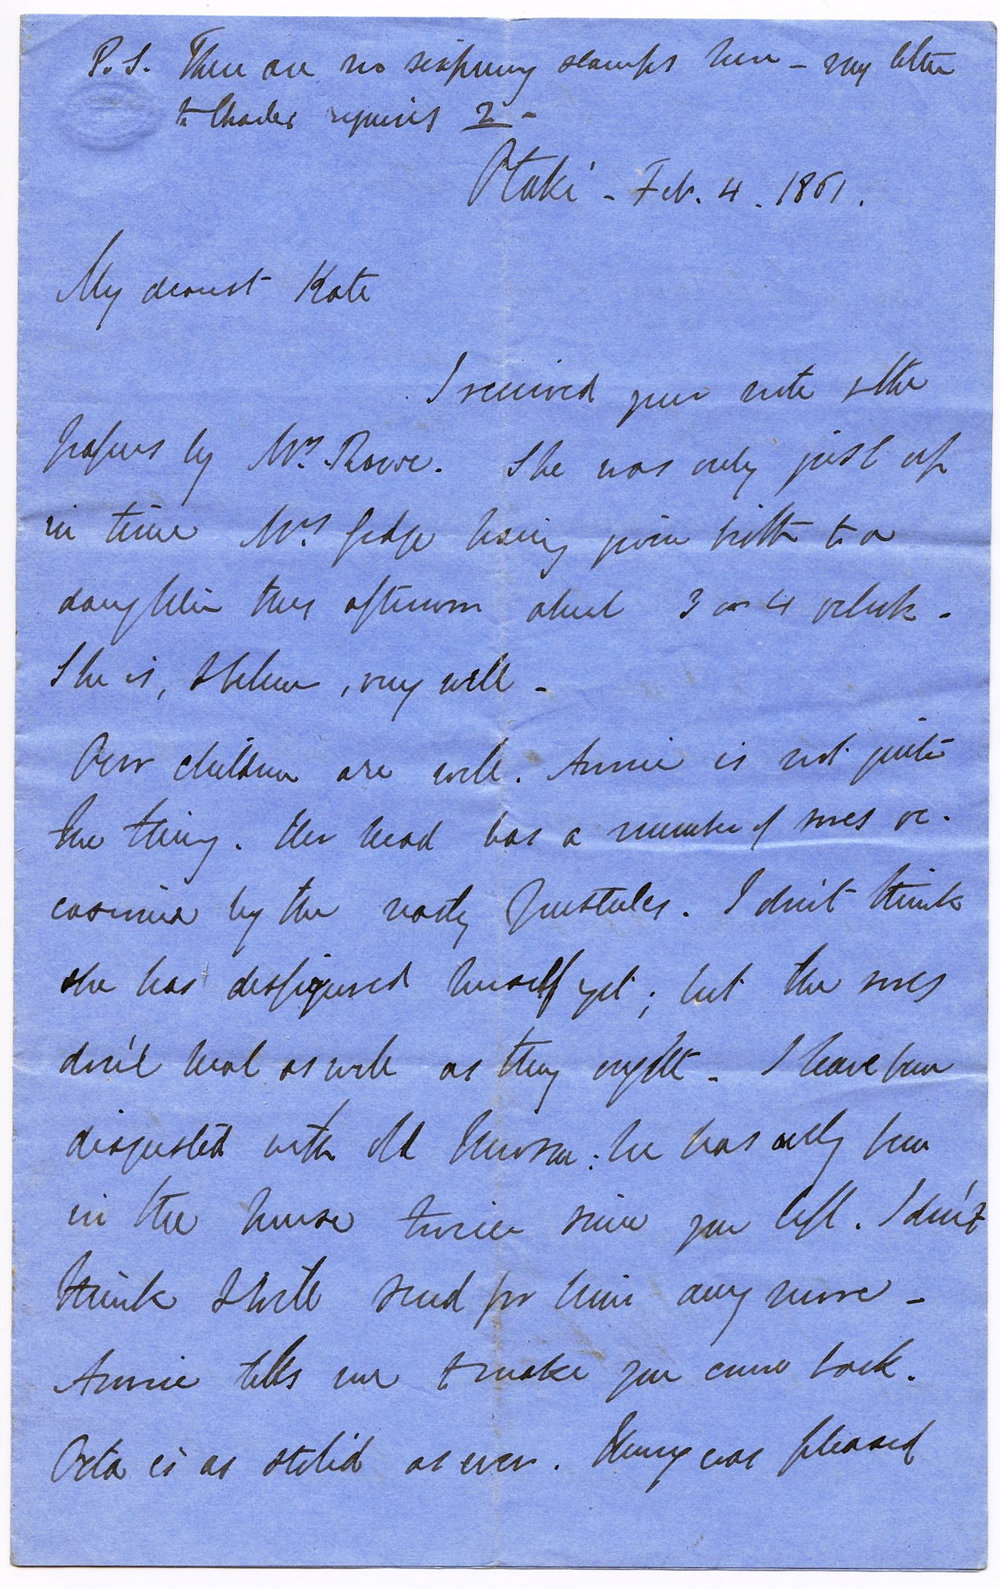 P.S. There are no sixpenny stamps here – my letter
to Charles requires 2 –
Otaki – Feb. 4. 1861.
My dearest Kate
I received your note & the
papers by Mrs. Rowe. She was only just up
in time Mrs. having given birth to a
daughter this afternoon about 3 or 4 o'clock –
She is, I believe, very well –
Our children are well. Annie is not quite
the thing. Her head has a number of sores oc-
casioned by the nasty pustules. I don't think
she has disfigured herself yet; but the sores
don't heal as well as they ought – I have been
disgusted with old : he has only been
in the house twice since you left. I don't
think I will send for him any more –
Annie tells me to make you come back.
Octa is as stolid as ever. Henry was pleased